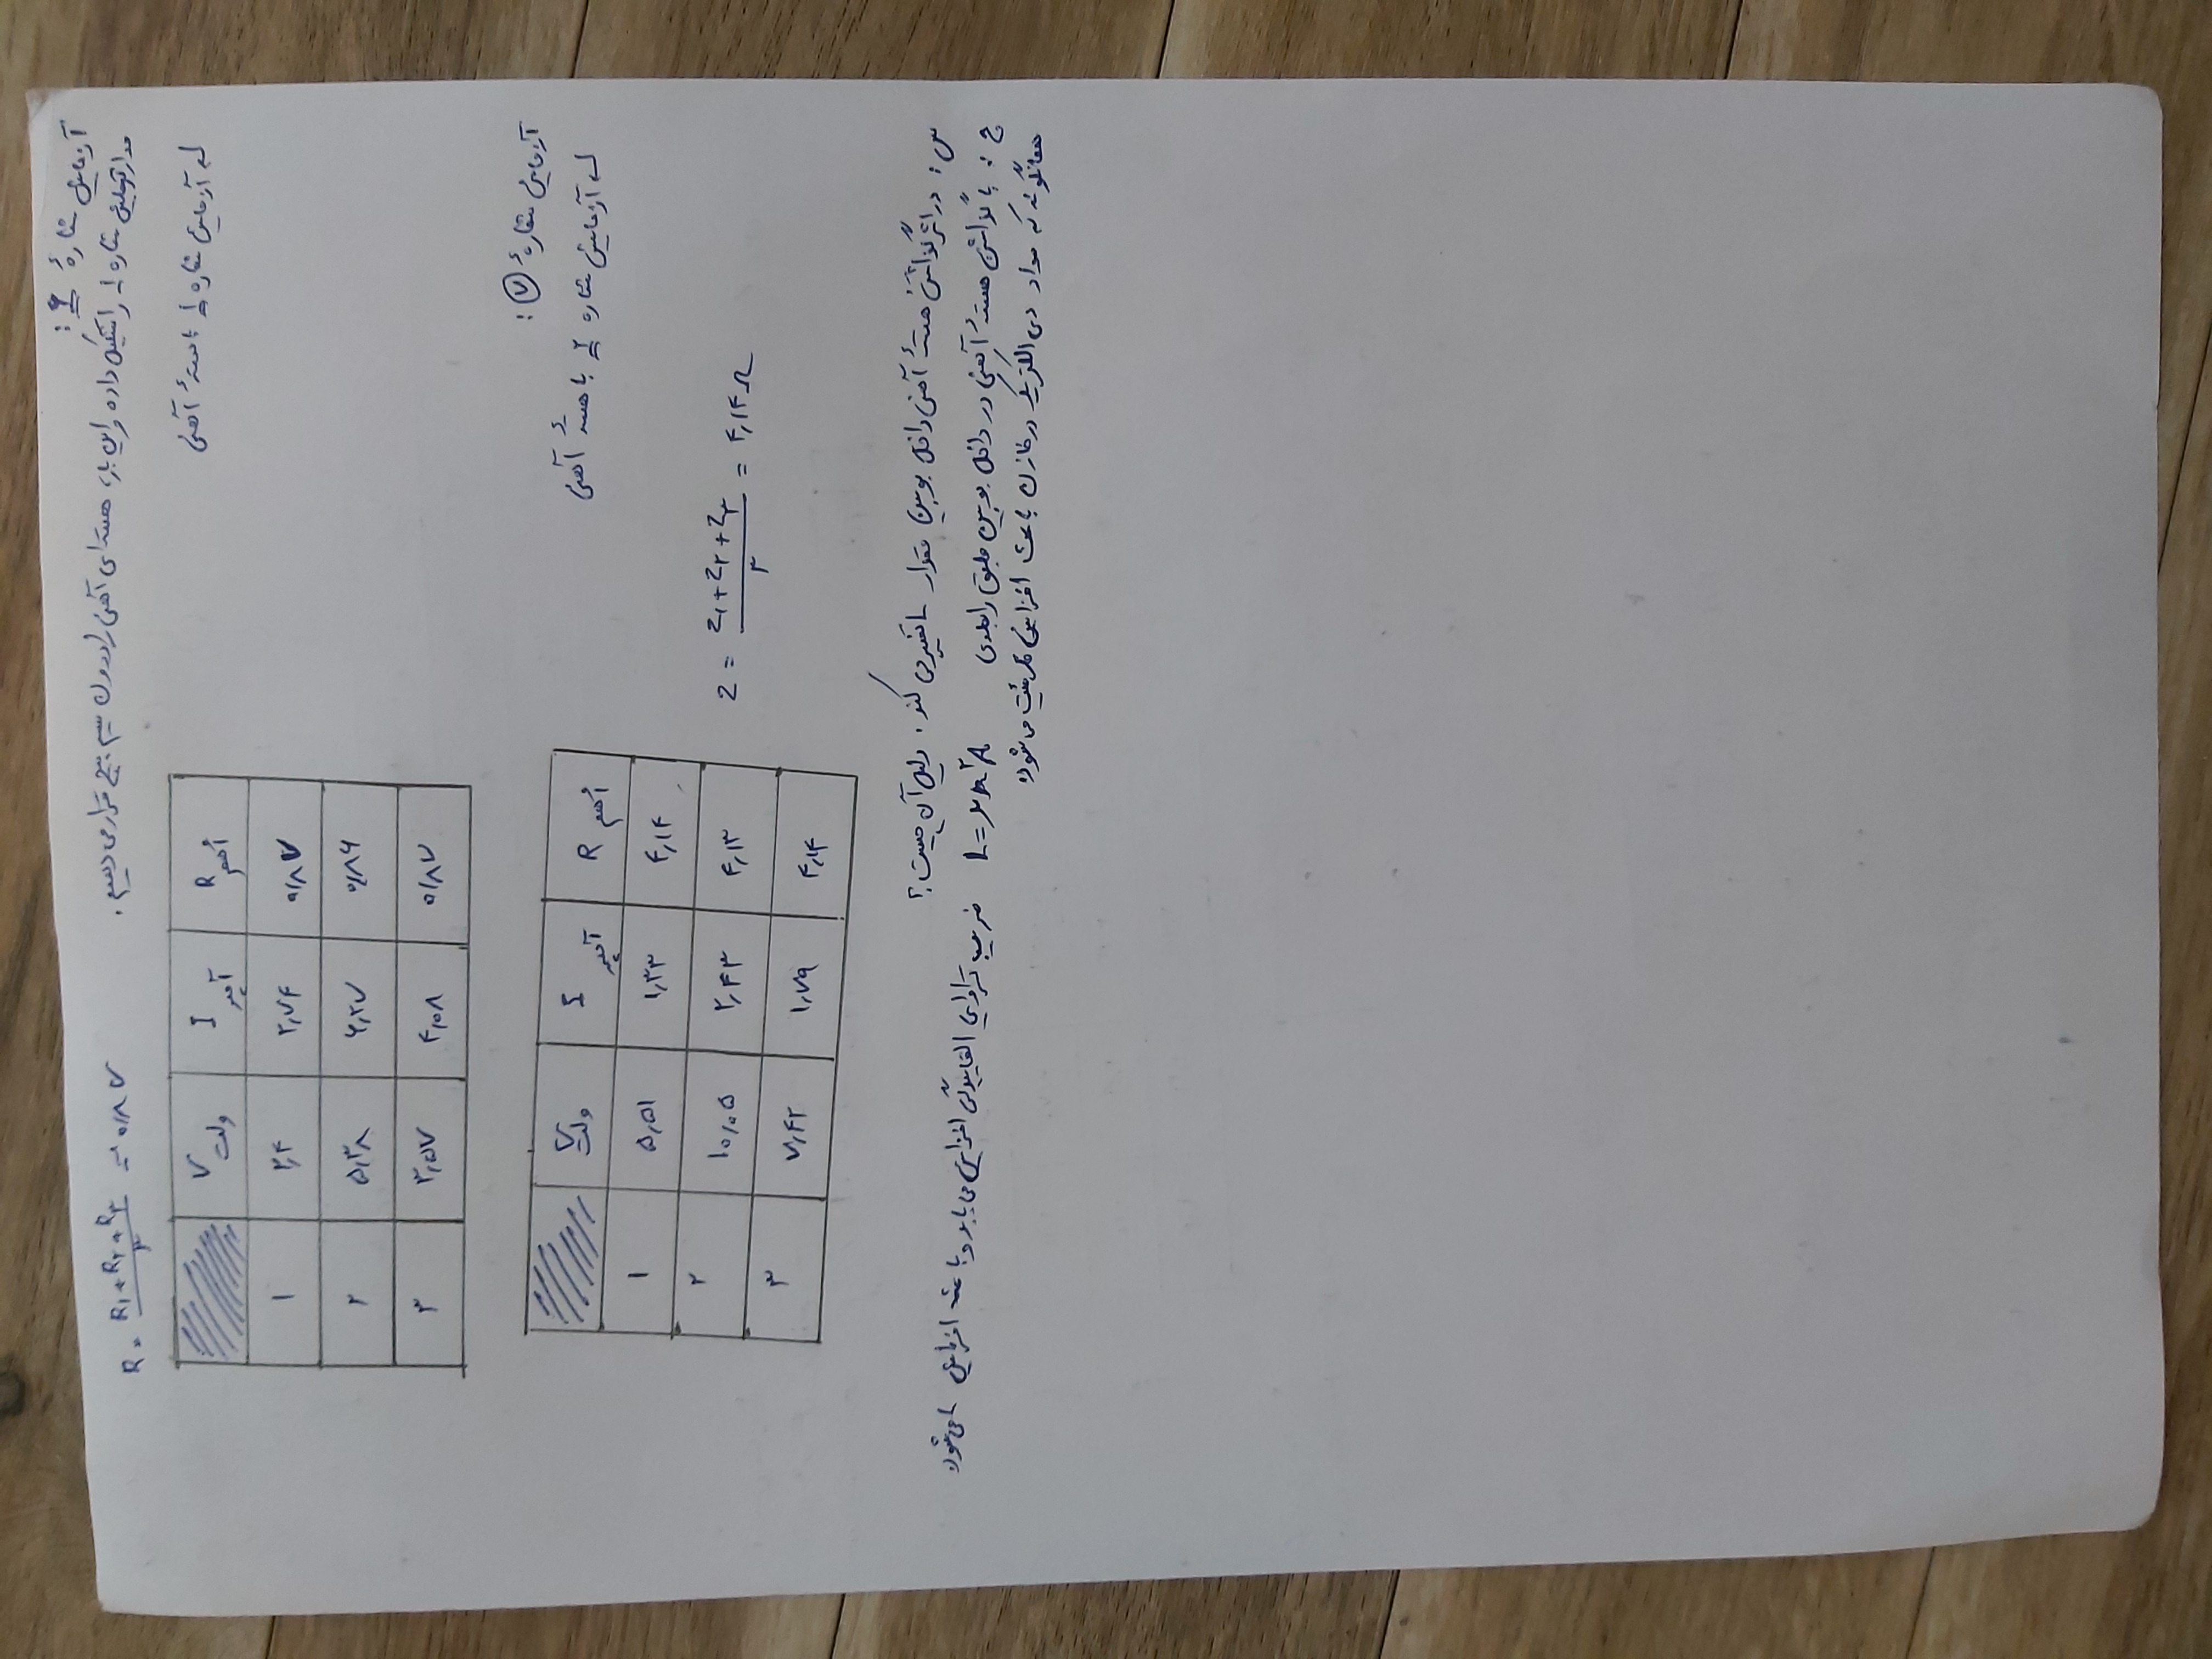 آزمایش شمارهٔ ۶ :
مدار آزمایش شماره ۱ را تشکیل داده و این بار، هسته‌ای آهنی را درون سیم پیچ قرار می دهیم.
R = (R₁ + R₂ + R₃)/۳ = ۰٫۸۷
↳ آزمایش شماره ۱ با هستهٔ آهنی
V ولت | I آمپر | R اُهم
۱ | ۲٫۴ | ۲٫۷۴ | ۰٫۸۷
۲ | ۵٫۳۸ | ۶٫۲۷ | ۰٫۸۶
۳ | ۳٫۵۷ | ۴٫۰۸ | ۰٫۸۷
آزمایش شمارهٔ ۷ :
↳ آزمایش شماره ۲ با هستهٔ آهنی
V ولت | I آمپر | R اُهم
۱ | ۵٫۵۱ | ۱٫۳۳ | ۴٫۱۴
۲ | ۱۰٫۰۵ | ۲٫۴۳ | ۴٫۱۳
۳ | ۷٫۴۲ | ۱٫۷۹ | ۴٫۱۴
Z = (Z₁ + Z₂ + Z₃)/۳ = ۴٫۱۴ Ω
س : در اثر گذاشتن هستهٔ آهنی داخل بوبین مقدار L تغییر می کند. دلیل آن چیست؟
ج : با گذاشتن هستهٔ آهنی در داخل بوبین طبق رابطه‌ی L=μn²A ضریب تراوایی القاییدگی افزایش می یابد و باعث افزایش L می شود.
همانگونه که مواد دی الکتریک در خازن باعث افزایش ظرفیت می شود.